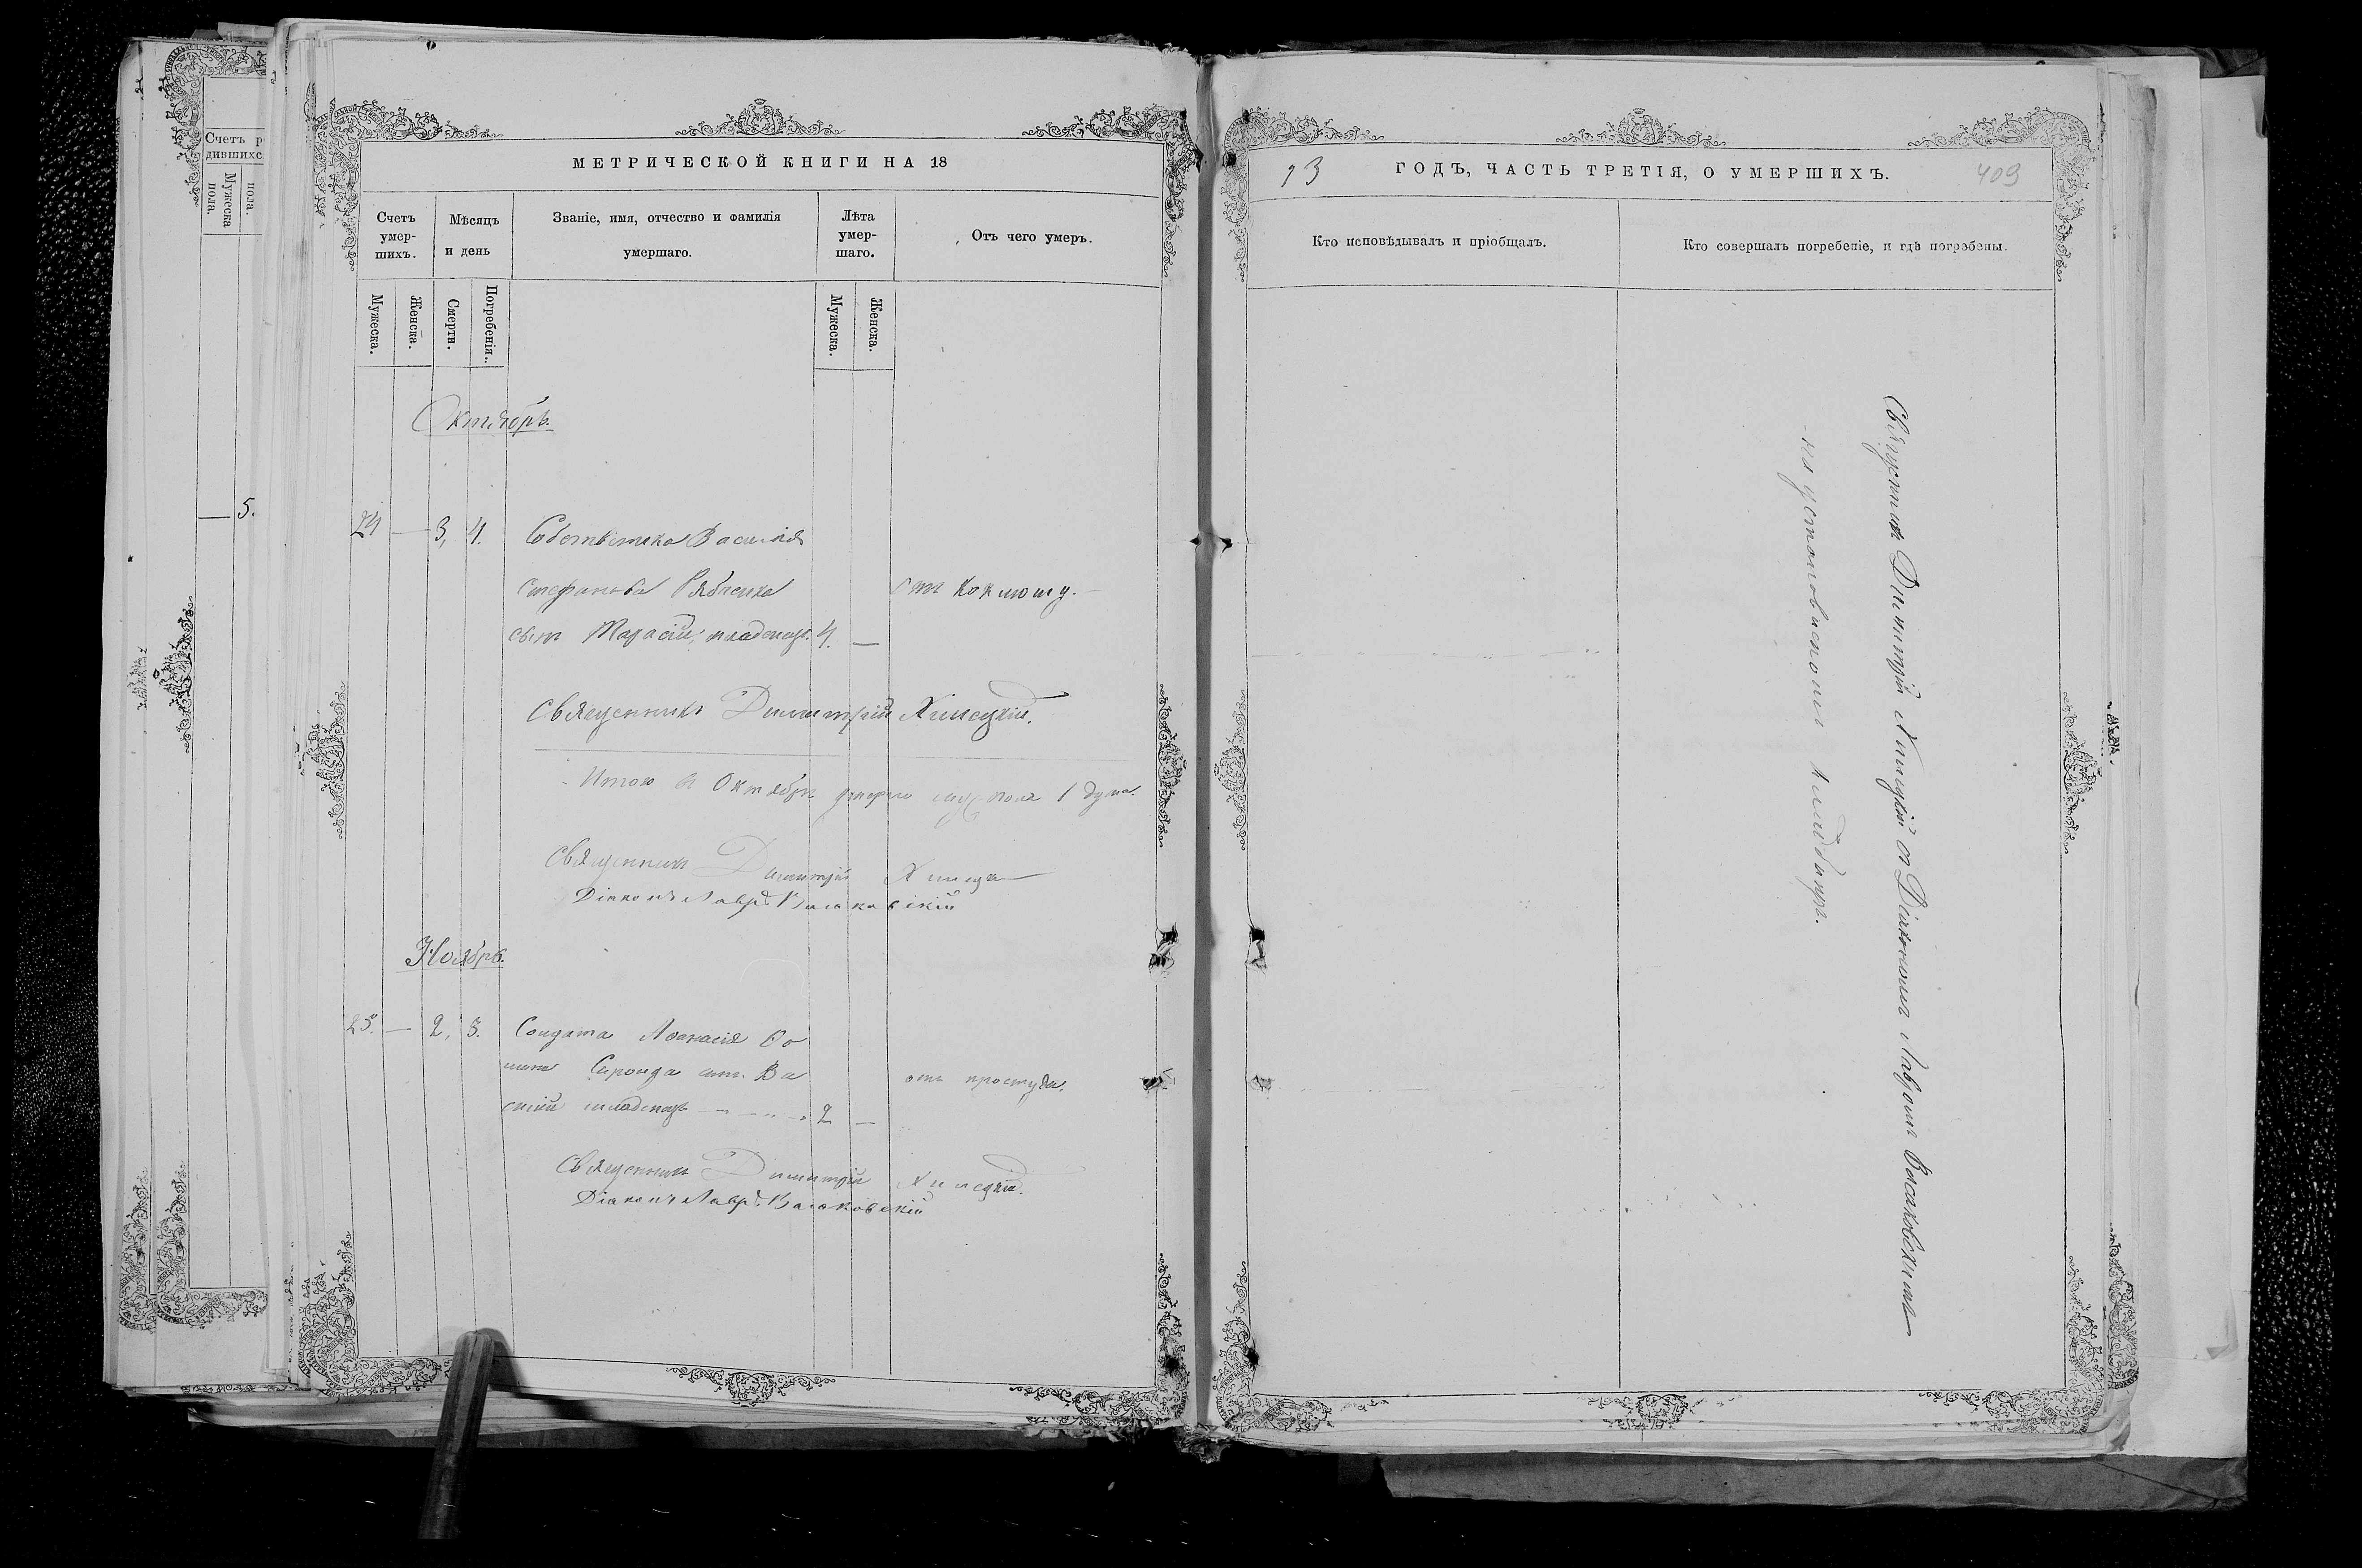 Счетъ р
дившихс
Мужеска
пола.
пола.
5.
МЕТРИЧЕСКОЙ КНИГИ НА 18
Счетъ
умер-
шихъ.
Мѣсяцъ
и день
Званіе, имя, отчество и фамилія
умершаго.
Лѣта
умер-
шаго.
Отъ чего умеръ.
Мужеска.
Женска.
Смерти.
Погребенія.
Мужеска.
Женска.
Октябрь.
24 — 3, 4. Собственника Василія
Стефанова
сынъ Тарасій, младенецъ. 4. —
отъ коклюшу.
Священникъ Димитрій Хинецкій.
Итого въ Октябрѣ умерло муж. пола 1 душа.
Священникъ Димитрій
Діаконъ Лавр.
Ноябрь.
25. — 2, 3. Солдата Аѳанасія
сынъ Ва
силій младенецъ 2 —
отъ простуды.
Священникъ Димитрій Хинецкій.
Діаконъ Лавр.
73 ГОДЪ, ЧАСТЬ ТРЕТІЯ, О УМЕРШИХЪ. 409
Кто исповѣдывалъ и пріобщалъ.
Кто совершалъ погребеніе, и гдѣ погребены.
Священникъ Димитрій Хинецкій съ Діакономъ
кладбищѣ.